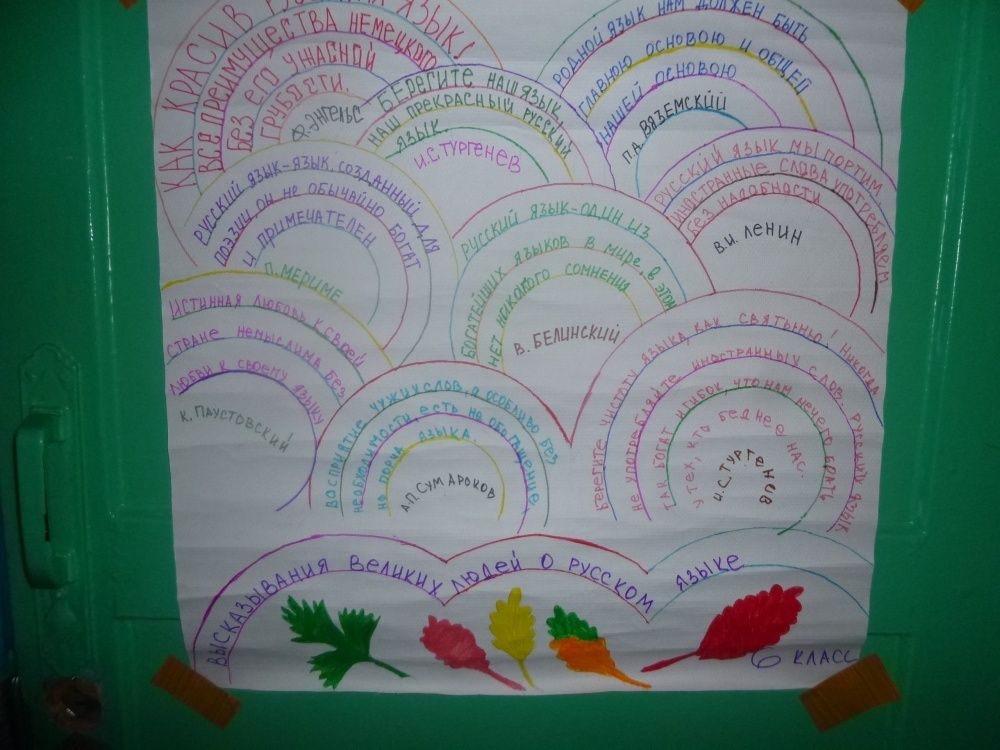 КАК КРАСИВ РУССКИЙ ЯЗЫК!
ВСЕ ПРЕИМУЩЕСТВА НЕМЕЦКОГО
БЕЗ ЕГО УЖАСНОЙ
ГРУБОСТИ.
Ф. ЭНГЕЛЬС
БЕРЕГИТЕ НАШ ЯЗЫК,
НАШ ПРЕКРАСНЫЙ РУССКИЙ
ЯЗЫК.
И.С ТУРГЕНЕВ
РОДНОЙ ЯЗЫК НАМ ДОЛЖЕН БЫТЬ
ГЛАВНОЮ ОСНОВОЮ И ОБЩЕЙ
НАШЕЙ ОСНОВОЮ
П.А. ВЯЗЕМСКИЙ
РУССКИЙ ЯЗЫК-ЯЗЫК, СОЗДАННЫЙ ДЛЯ
ПОЭЗИИ, ОН НЕ ОБЫЧАЙНО БОГАТ
И ПРИМЕЧАТЕЛЕН
П. МЕРИМЕ
РУССКИЙ ЯЗЫК-ОДИН ИЗ
БОГАТЕЙШИХ ЯЗЫКОВ В МИРЕ, В ЭТОМ
НЕТ НИКАКОГО СОМНЕНИЯ
В. БЕЛИНСКИЙ
РУССКИЙ ЯЗЫК МЫ ПОРТИМ
ИНОСТРАННЫЕ СЛОВА УПОТРЕБЛЯЕМ
БЕЗ НАДОБНОСТИ
В.И. ЛЕНИН
ИСТИННАЯ ЛЮБОВЬ К СВОЕЙ
СТРАНЕ НЕМЫСЛИМА БЕЗ
ЛЮБВИ К СВОЕМУ ЯЗЫКУ
К. ПАУСТОВСКИЙ
ВОСПРИЯТИЕ ЧУЖИХ СЛОВ, А ОСОБЛИВО БЕЗ
НЕОБХОДИМОСТИ, ЕСТЬ НЕ ОБОГАЩЕНИЕ,
НО ПОРЧА ЯЗЫКА.
А.П. СУМАРОКОВ
БЕРЕГИТЕ ЧИСТОТУ ЯЗЫКА, КАК СВЯТЫНЮ! НИКОГДА
НЕ УПОТРЕБЛЯЙТЕ ИНОСТРАННЫХ СЛОВ. РУССКИЙ ЯЗЫК
ТАК БОГАТ И ГИБОК, ЧТО НАМ НЕЧЕГО БРАТЬ
У ТЕХ, КТО БЕДНЕЕ НАС.
И.С.ТУРГЕНЕВ
ВЫСКАЗЫВАНИЯ ВЕЛИКИХ ЛЮДЕЙ О РУССКОМ ЯЗЫКЕ
6 КЛАСС